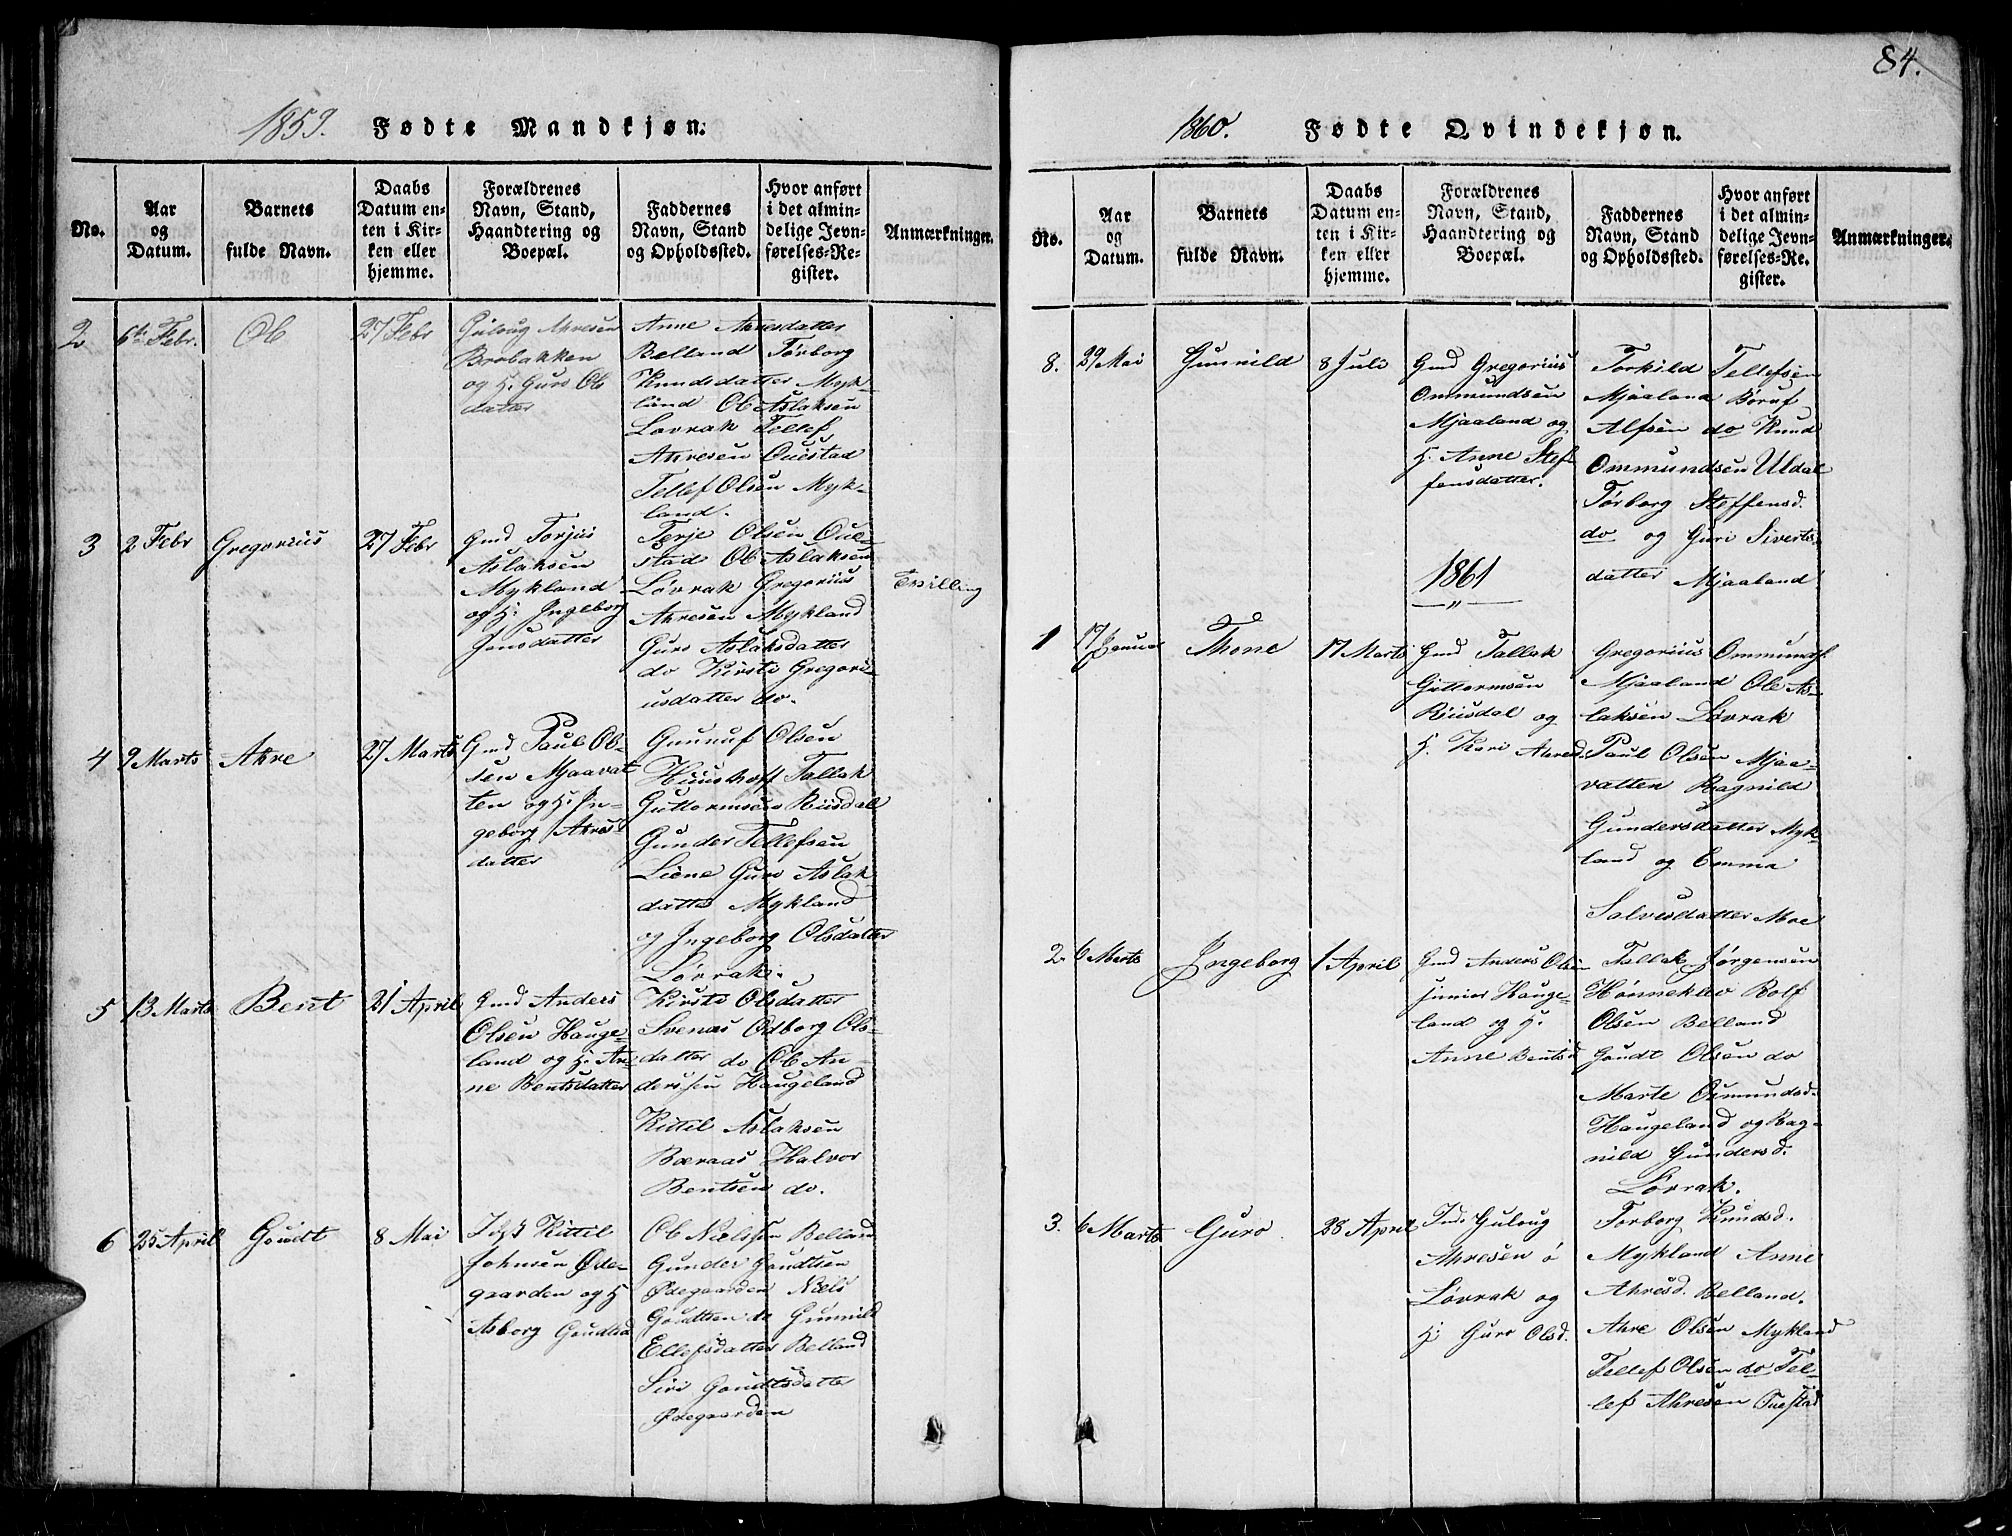 1859. Fødte Mandkjøn.
No.
Aar
og
Datum.
Barnets
fulde Navn.
Daabs
Datum en-
ten i Kir-
ken eller
hjemme.
Forældrenes
Navn, Stand,
Haandtering og
Boepæl.
Faddernes
Navn, Stand
og Opholdssted.
Hvor anført
i det almin-
delige Jevn-
førelses-Re-
gister.
Anmærkninger.
2
6te Febr.
Ole
27 Febr
Guloug Ahresen
Brobakken
og H. Guro Ols
datter
Anne Ahresdatter
Belland Torborg
Knudsdatter Myk-
land Ole Aslaksen
Løvrak Tellef
Ahresen
Tellef Olsen Myk-
land.
3
2 Febr
Gregorius
27 Febr
Gmd Torjus
Aslaksen
Mykland
og H. Ingeborg
Jensdatter
Terje Olsen Oue-
stad Ole Aslaksen
Løvrak Gregorius
Ahresen Mykland
Guro Aslaksdatter
do Kirsti Gregori-
usdatter do.
Tvilling
4
9 Marts
Ahre
27 Marts
Gmd Paul Ol-
sen Mjaavat
ten og H. In-
geborg Ahres
datter
Gunuf Olsen
Huushoft Tallak
Guttormsen Risdal
Gunder Tellefsen
Liene Guro Aslak
datter Mykland
og Ingeborg Olsdatter
Løvrak.
5
13 Marts
Bent
21 April
Gmd Anders
Olsen Hauge-
land og H. An
ne Bentsdatter
Kirsti Olsdatter
Svenaas Odborg Ols-
datter do Ole An-
derssen Haugeland
Kittil Aslaksen
Bæraas Halvor
Bentsen do.
6
25 April
Goudt
8 Mai
Kittil
Johnsen Øde-
gaarden og H
Asborg Goudtsd
Ole Nielssen Belland
Gunder Goudtsen
Ødegaarden Niels
Goudtsen do Gunnild
Ellefsdatter Belland
Siri Goudtsdatter
Ødegaarden
84.
1860. Fødte Qvindekjøn.
No.
Aar
og
Datum.
Barnets
fulde Navn.
Daabs
Datum en-
ten i Kir-
ken eller
hjemme.
Forældrenes
Navn, Stand,
Haandtering og
Boepæl.
Faddernes
Navn, Stand
og Opholdssted.
Hvor anført
i det almin-
delige Jevn-
førelses-Re-
gister.
Anmærkninger.
8.
29 Mai
Gunvild
8 Juli
Gmd Gregorius
Ommundsen
Mjaaland og
H. Anne Stef
fensdatter.
Torkild Tellefsen
Mjaaland
Alfsen do Knud
Ommundsen Uldal
Torborg Steffensd.
do og Guri Siverts-
datter Mjaaland
1861
1
17 Januar
Thone
17 Marts
Gmd Tallak
Guttormsen
Riisdal og
H. Kari Ahresd
Gregorius Ommunds.
Mjaaland Ole As-
laksen Løvrak
Paul Olsen Mjaa-
vatten Ragnild
Gundersdatter Myk-
land og Emma
Salvesdatter Moe
2.
6 Marts
Ingeborg
1 April
Gmd Anders Olsen
junior Hauge-
land og H.
Anne Bentsd
Tallak Jørgensen
Hønnekleo Rolf
Olsen Belland
Goudt Olsen do
Marte Osmundsd.
Haugeland og Rag-
nild Gundersd.
Løvrak.
3.
6 Marts
Guro
28 April
Ind. Guloug
Ahresen ø
Løvrak og
H. Guro Olsd.
Torborg Knudsd.
Mykland Anne
Ahresd. Belland.
Ahre Olsen Mykland
Tellef Olsen do Tel-
lef Ahresen Tuestad